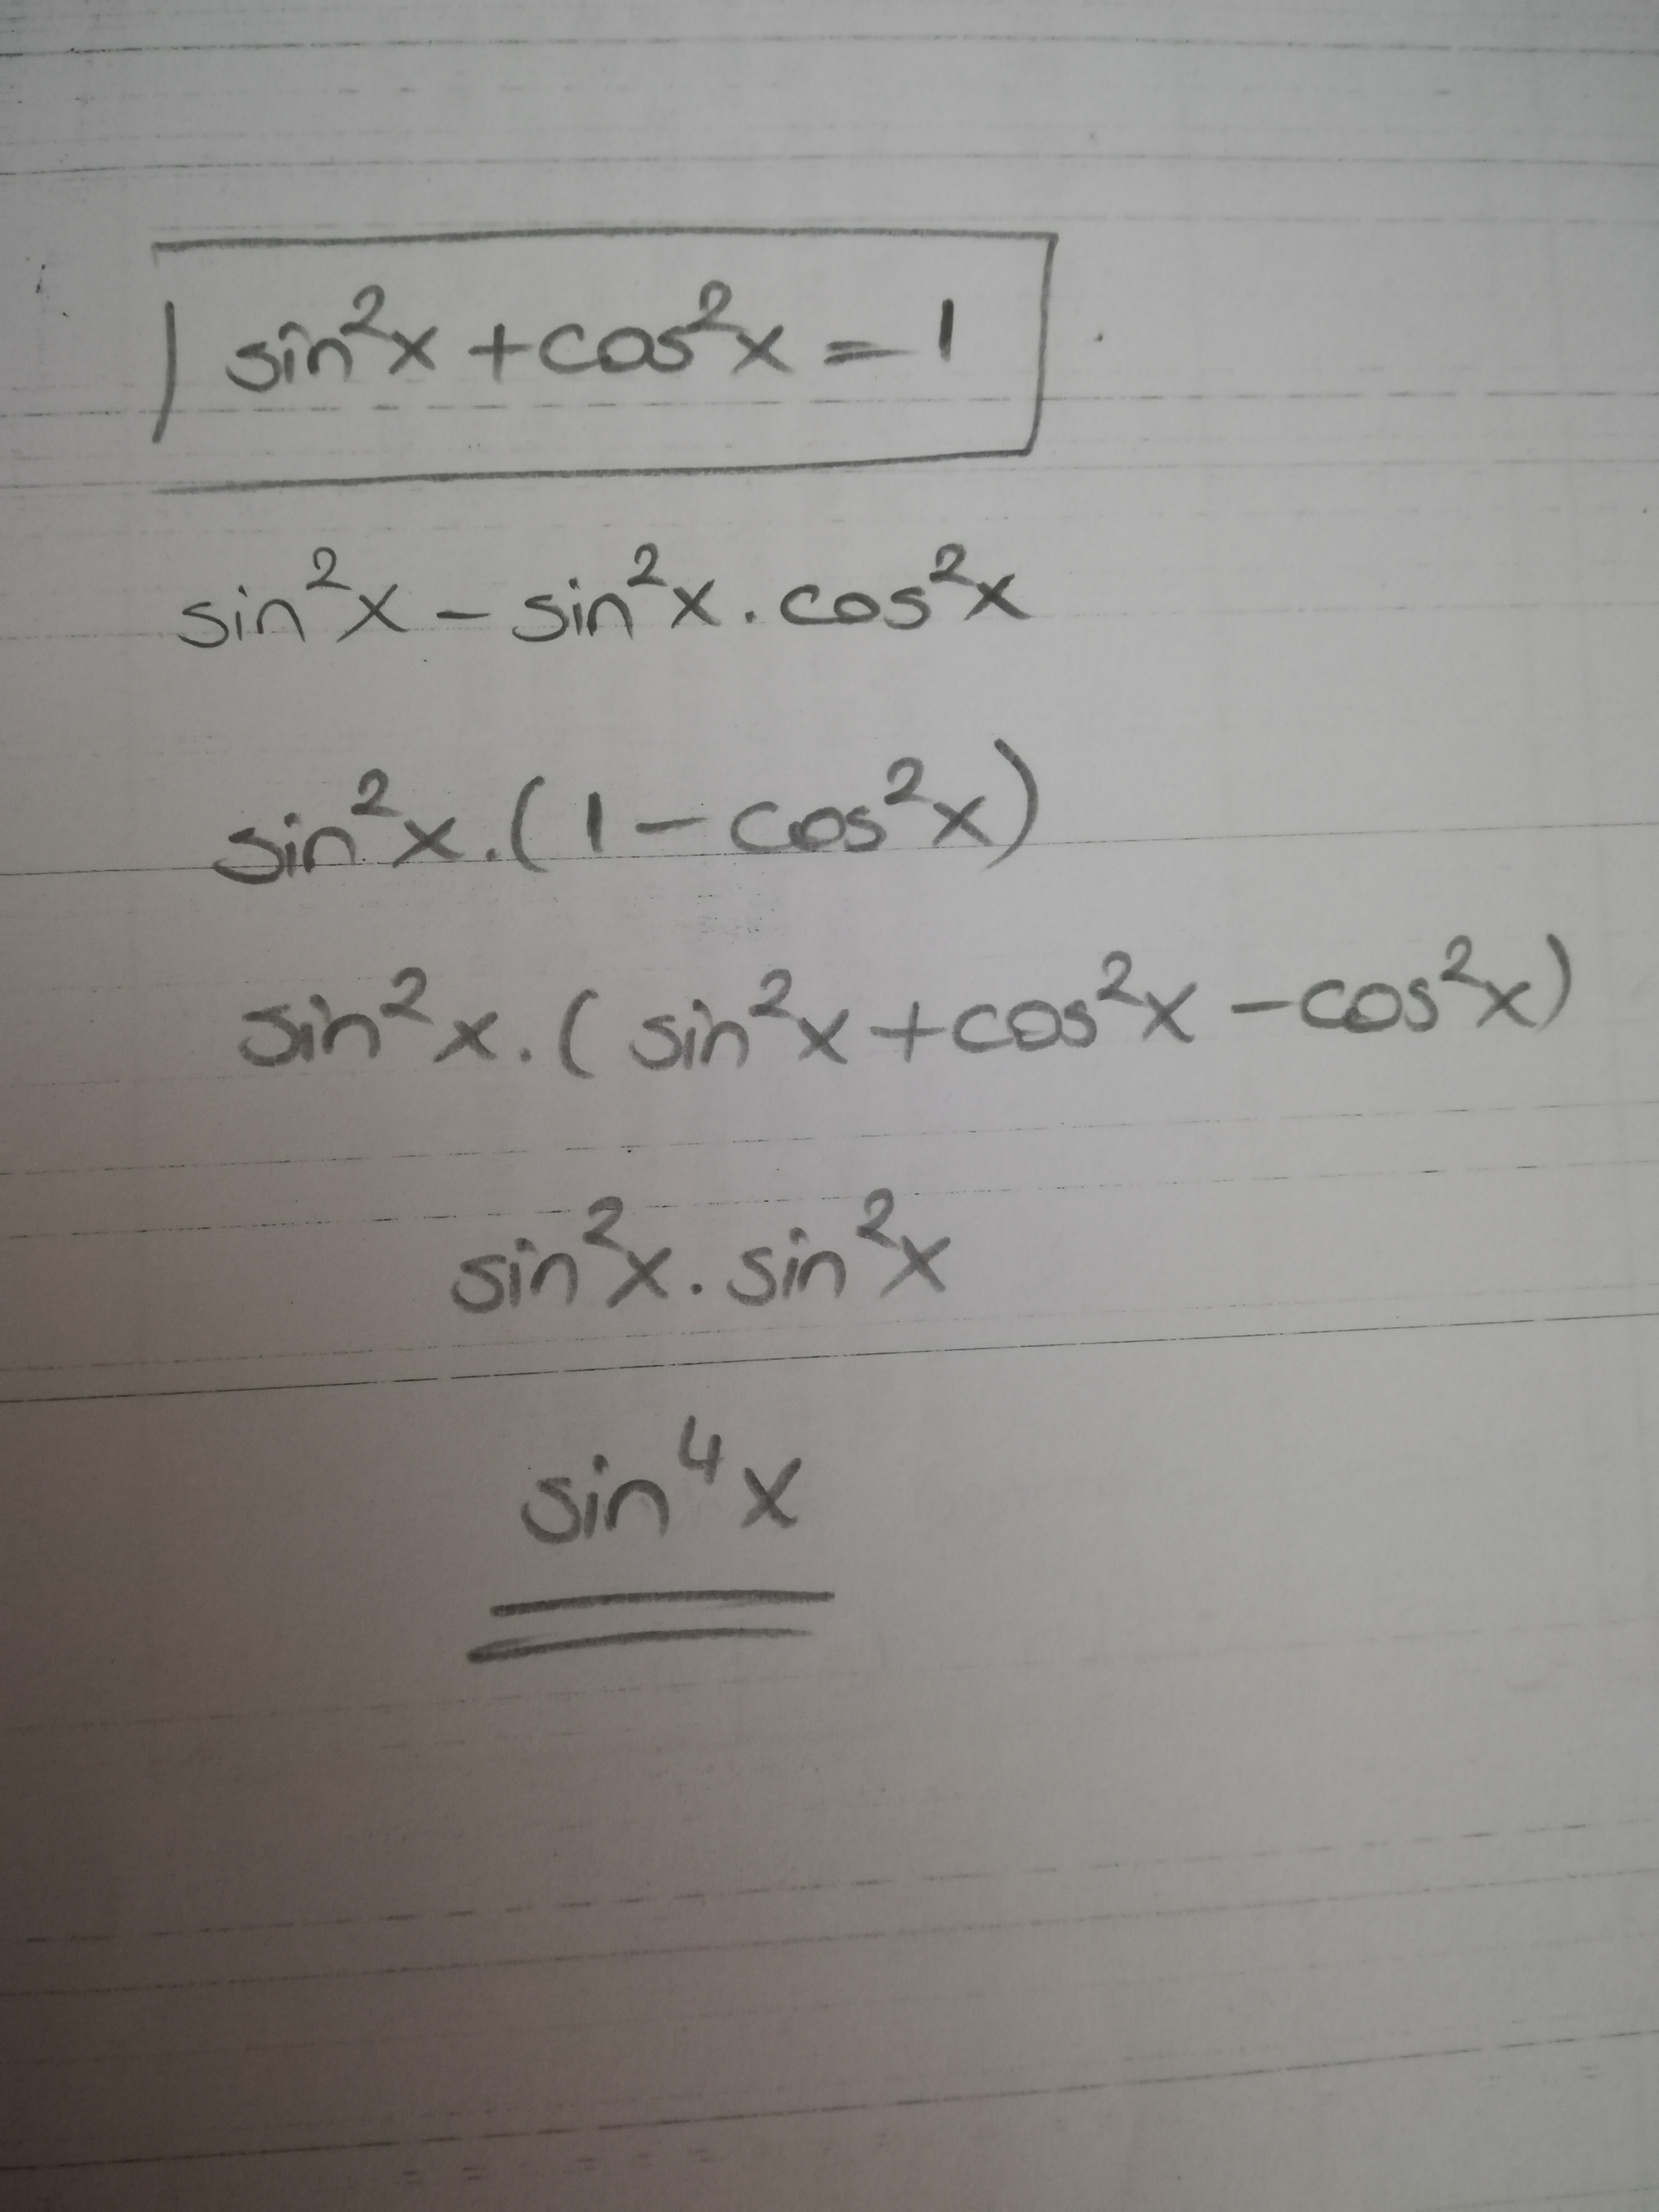 sin²x + cos²x = 1
sin²x - sin²x . cos²x
sin²x . (1 - cos²x)
sin²x . ( sin²x + cos²x - cos²x)
sin²x . sin²x
sin⁴x